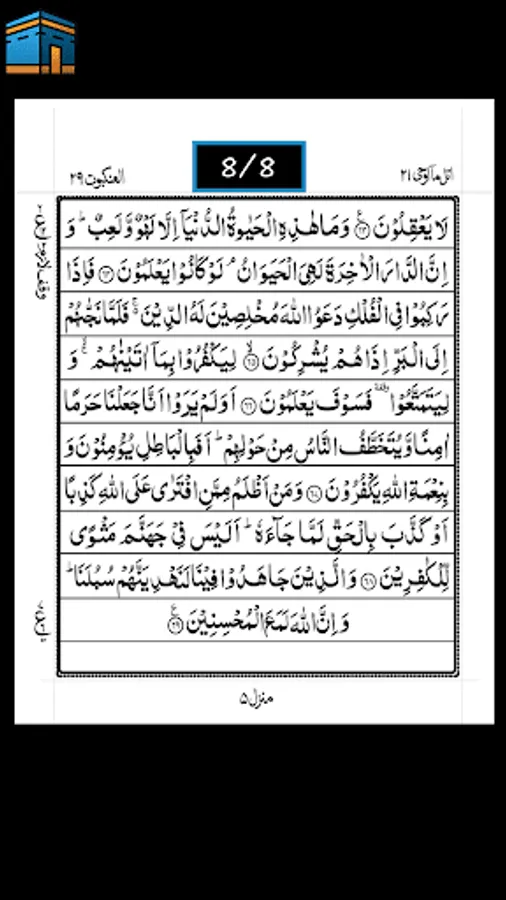 8/8
اتل ما اوحی ۲۱
العنکبوت ۲۹
لَا يَعْقِلُوْنَ ﴿۶۳﴾ وَمَا هٰذِهِ الْحَيٰوةُ الدُّنْيَاۤ اِلَّا لَهْوٌ وَّلَعِبٌ ؕ وَ
اِنَّ الدَّارَ الْاٰخِرَةَ لَهِىَ الْحَيَوَانُ ۘ لَوْ كَانُوْا يَعْلَمُوْنَ ﴿۶۴﴾ فَاِذَا
رَكِبُوْا فِى الْفُلْكِ دَعَوُا اللّٰهَ مُخْلِصِيْنَ لَهُ الدِّيْنَ ۚ فَلَمَّا نَجّٰىهُمْ
اِلَى الْبَرِّ اِذَا هُمْ يُشْرِكُوْنَ ﴿۶۵﴾ لِيَكْفُرُوْا بِمَاۤ اٰتَيْنٰهُمْ ۚ وَ
لِيَتَمَتَّعُوْا ۥ فَسَوْفَ يَعْلَمُوْنَ ﴿۶۶﴾ اَوَلَمْ يَرَوْا اَنَّا جَعَلْنَا حَرَمًا
اٰمِنًا وَّيُتَخَطَّفُ النَّاسُ مِنْ حَوْلِهِمْ ؕ اَفَبِالْبَاطِلِ يُؤْمِنُوْنَ وَ
بِنِعْمَةِ اللّٰهِ يَكْفُرُوْنَ ﴿۶۷﴾ وَمَنْ اَظْلَمُ مِمَّنِ افْتَرٰى عَلَى اللّٰهِ كَذِبًا
اَوْ كَذَّبَ بِالْحَقِّ لَمَّا جَآءَهٗ ؕ اَلَيْسَ فِىْ جَهَنَّمَ مَثْوًى
لِّلْكٰفِرِيْنَ ﴿۶۸﴾ وَالَّذِيْنَ جَاهَدُوْا فِيْنَا لَنَهْدِيَنَّهُمْ سُبُلَنَا ؕ
وَاِنَّ اللّٰهَ لَمَعَ الْمُحْسِنِيْنَ ﴿۶۹﴾
منزل ۵